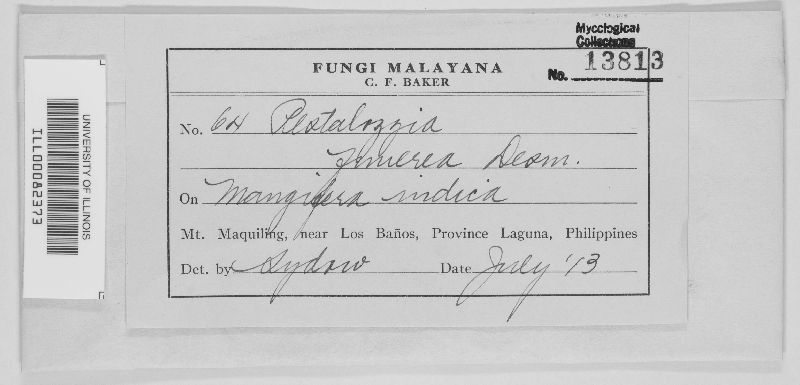 Mycological
Collections
No. 13813
FUNGI MALAYANA
C. F. BAKER
No. 64 Pestalozzia
funerea Desm.
On Mangifera indica
Mt. Maquiling, near Los Baños, Province Laguna, Philippines
Det. by Sydow Date July '13
UNIVERSITY OF ILLINOIS
ILL00082373